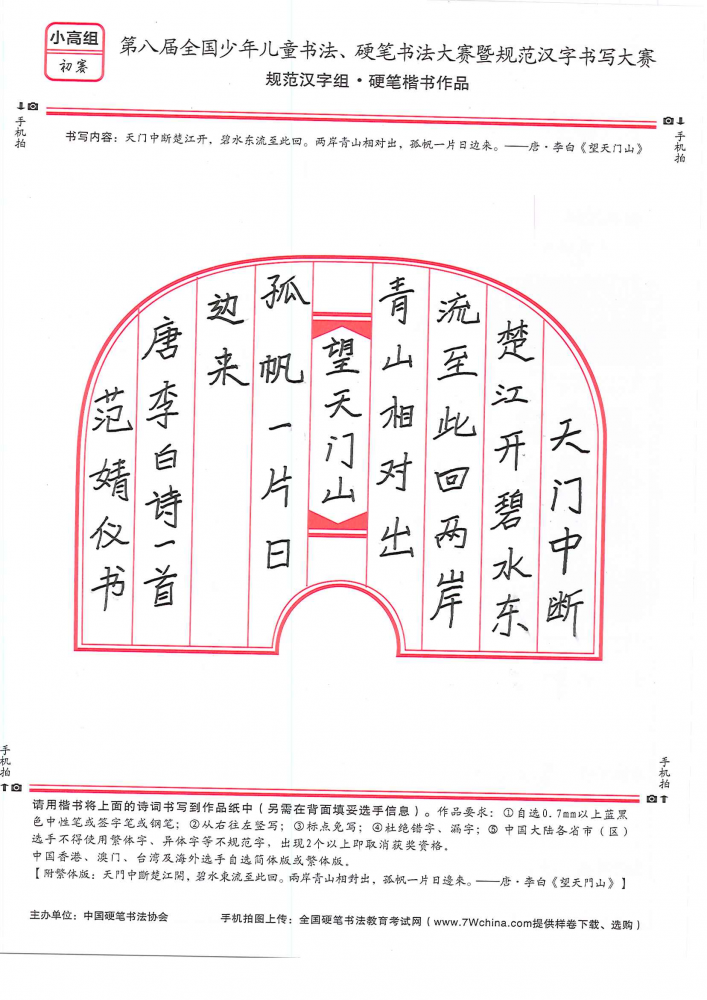 小高组
初赛
第八届全国少年儿童书法、硬笔书法大赛暨规范汉字书写大赛
规范汉字组·硬笔楷书作品
手机拍
手机拍
书写内容：天门中断楚江开，碧水东流至此回。两岸青山相对出，孤帆一片日边来。——唐·李白《望天门山》
天门中断
楚江开碧水东
流至此回两岸
青山相对出
望天门山
孤帆一片日
边来
唐李白诗一首
范婧仪书
手机拍
手机拍
请用楷书将上面的诗词书写到作品纸中（另需在背面填妥选手信息）。作品要求：①自选0.7mm以上蓝黑
色中性笔或签字笔或钢笔；②从右往左竖写；③标点免写；④杜绝错字、漏字；⑤中国大陆各省市（区）
选手不得使用繁体字、异体字等不规范字，出现2个以上即取消获奖资格。
中国香港、澳门、台湾及海外选手自选简体版或繁体版。
【附繁体版：天門中斷楚江開，碧水東流至此回。兩岸青山相對出，孤帆一片日邊來。——唐·李白《望天門山》】
主办单位：中国硬笔书法协会 手机拍图上传：全国硬笔书法教育考试网（www.7Wchina.com提供样卷下载、选购）